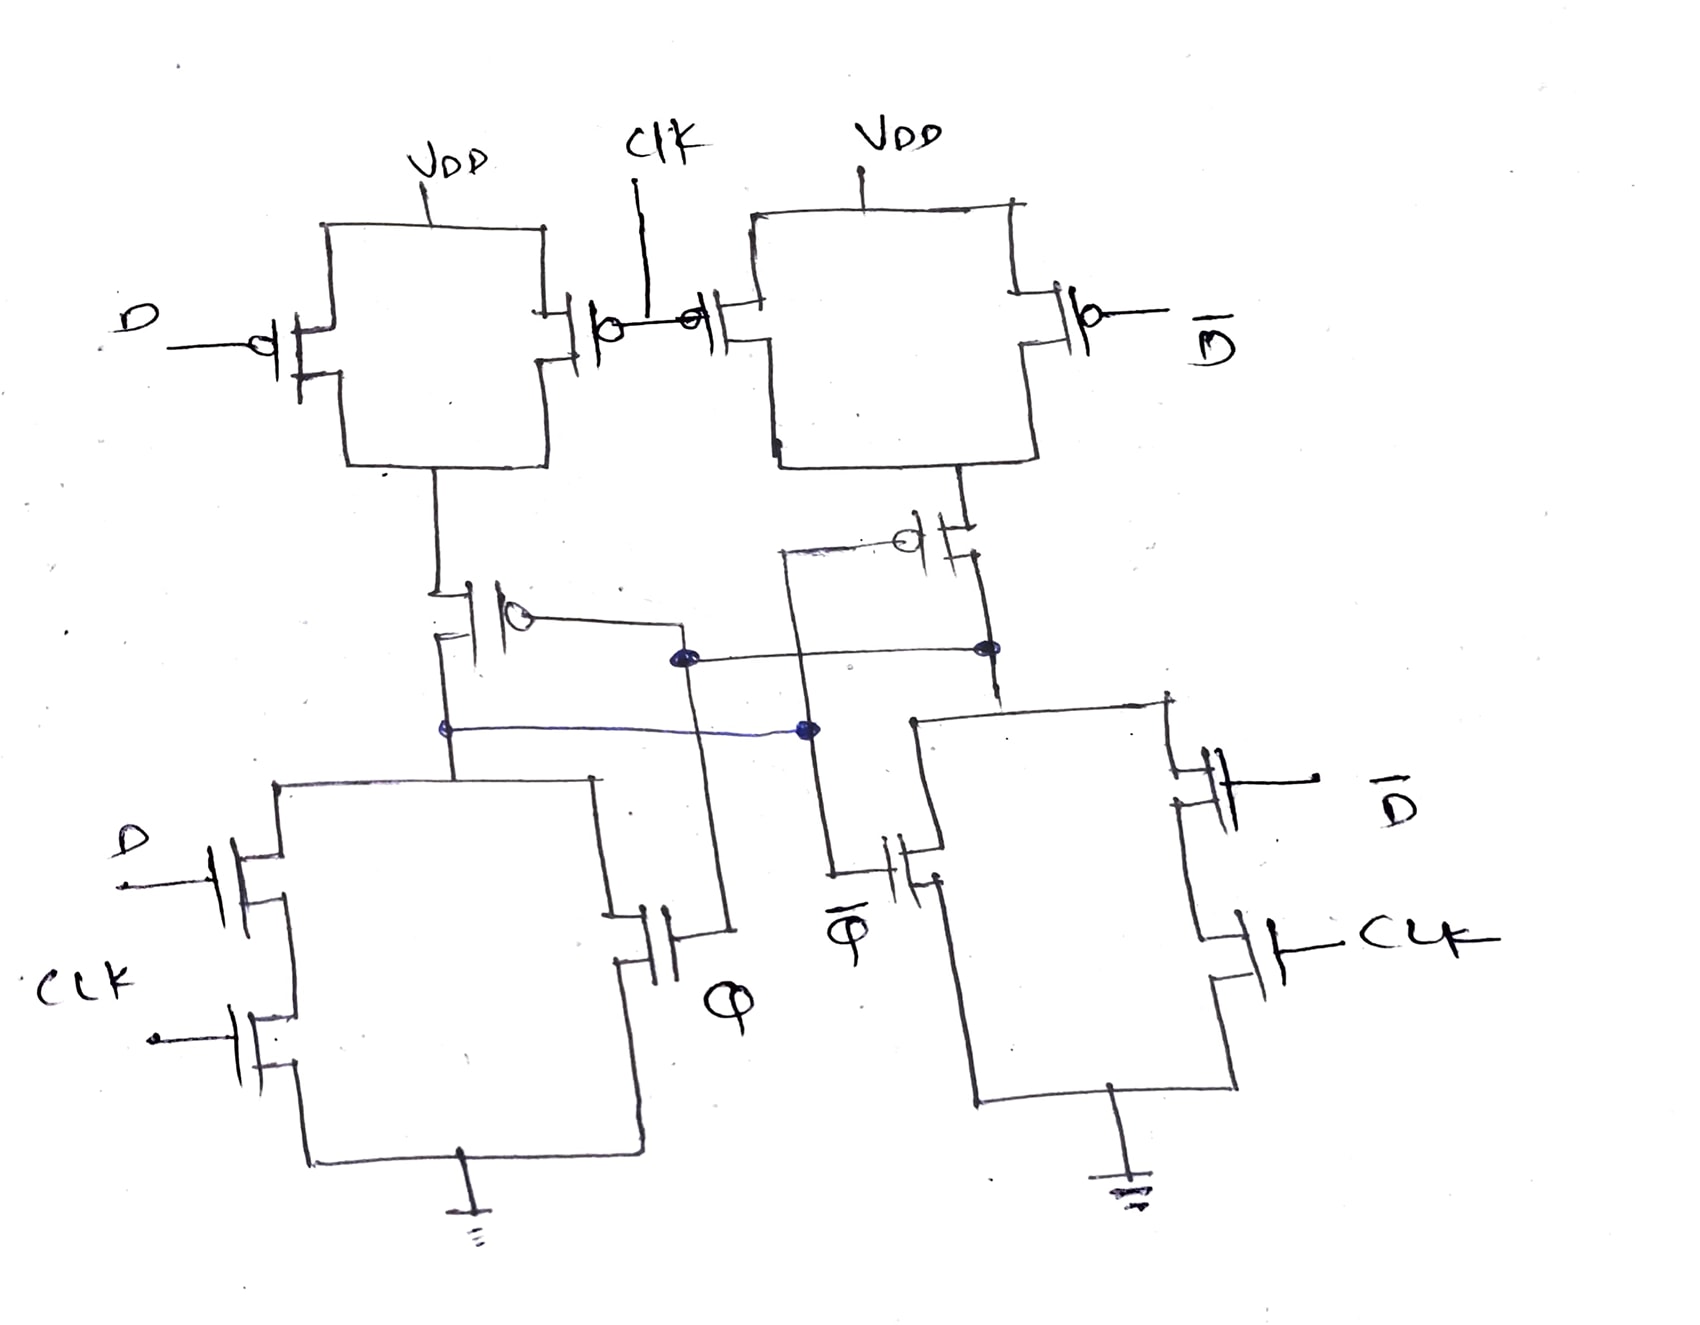 VDD
ClK
VDD
D
D̅
D
D̅
CLK
Q̅
CLK
Q